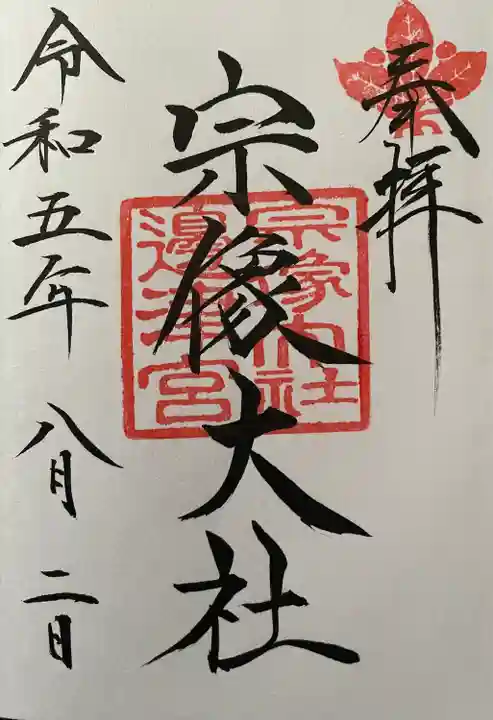 奉拝
宗像大社
宗像大社
邊津宮
令和五年八月二日